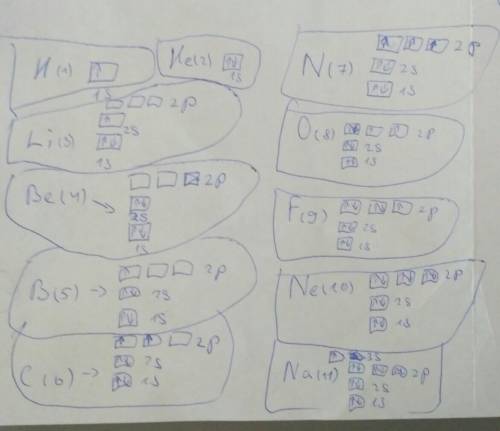 H (1) ↑
1s
He(2) ↑↓
1s
2p
Li(3) ↑ 2s
↑↓
1s
2p
Be(4) → ↑↓
2s
↑↓
1s
↑ 2p
B(5) → ↑↓ 2s
↑↓ 1s
↑ ↑ 2p
C(6) → ↑↓ 2s
↑↓ 1s
↑ ↑ ↑ 2p
N(7) ↑↓ 2s
↑↓ 1s
↑↓ ↑ ↑ 2p
O(8) ↑↓ 2s
↑↓ 1s
↑↓ ↑↓ ↑ 2p
F(9) ↑↓ 2s
↑↓ 1s
↑↓ ↑↓ ↑↓ 2p
Ne(10) ↑↓ 2s
↑↓ 1s
↑ 3s
↑↓ ↑↓ ↑↓ 2p
Na(11) ↑↓ 2s
↑↓ 1s